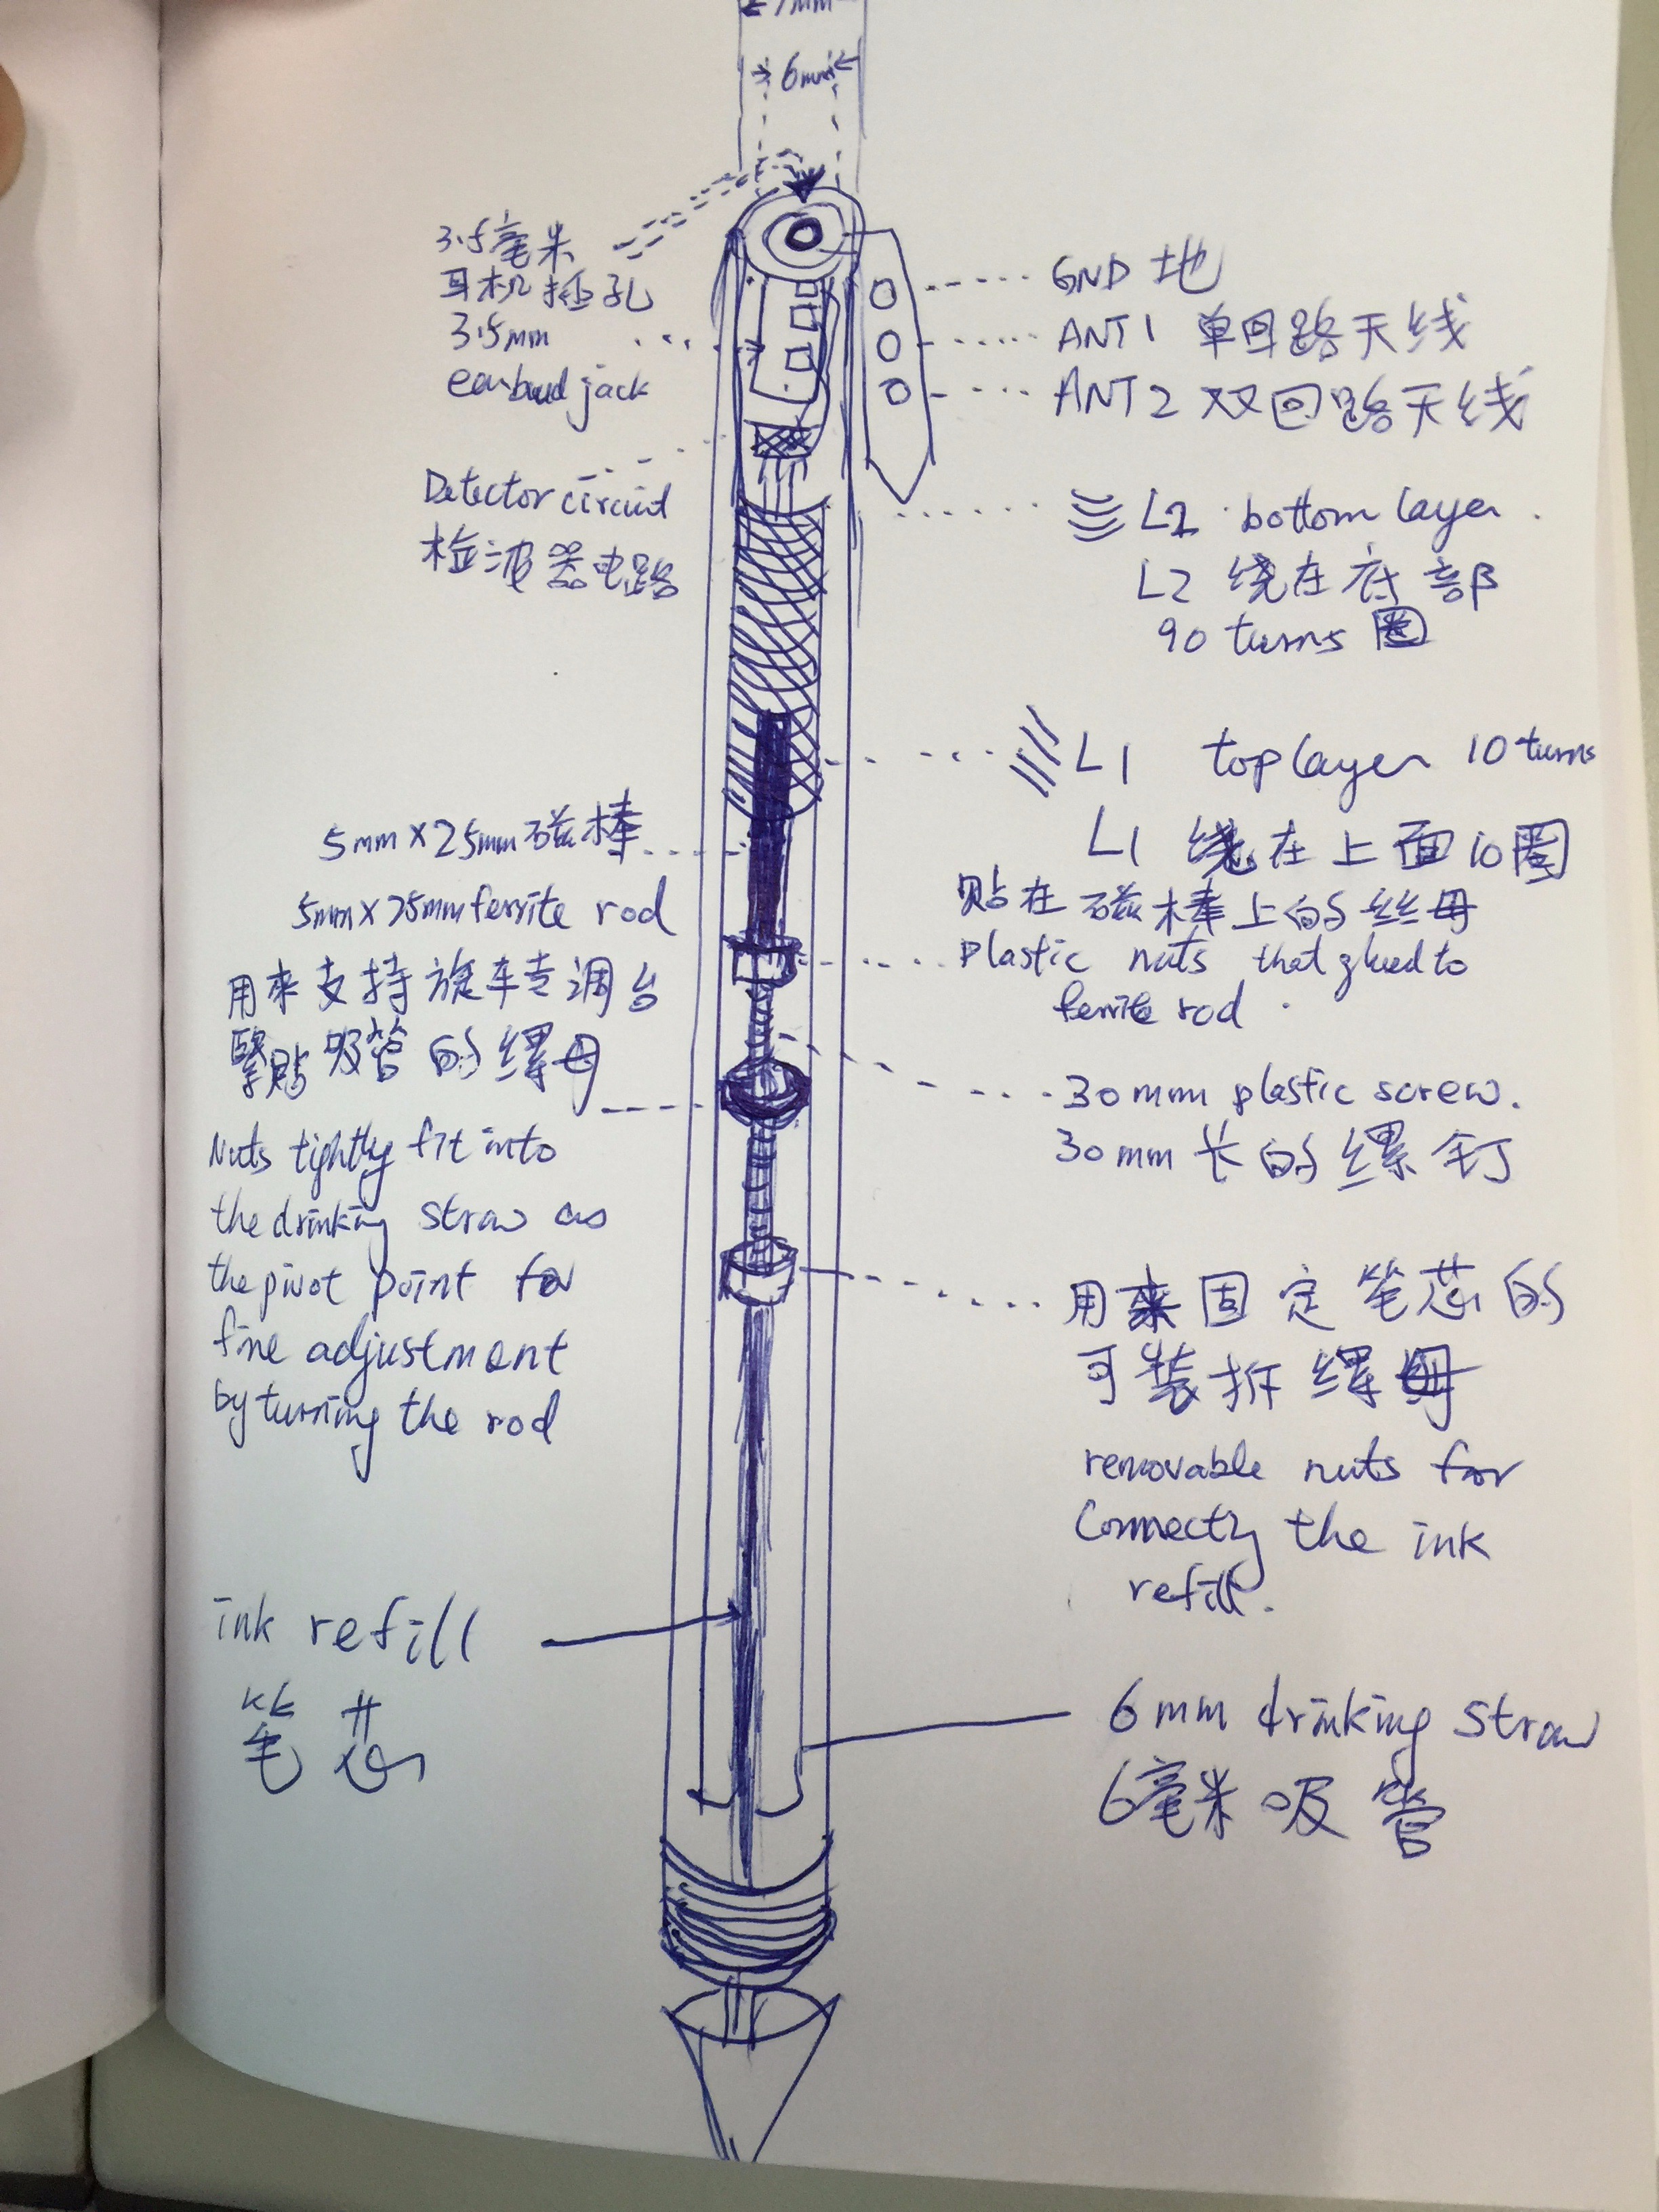 7mm
6mm
3.5毫米
耳机插孔
3.5mm
earbud jack
GND 地
ANT1 单回路天线
ANT2 双回路天线
Detector circuit
检波器电路
L2 bottom layer.
L2 绕在底部
90 turns 圈
L1 top layer 10 turns
L1 绕在上面10圈
5mm×25mm磁棒
5mm×25mm ferrite rod
贴在磁棒上的丝母
plastic nuts that glued to
ferrite rod.
用来支持旋转调台
紧贴吸管的螺母
Nuts tightly fit into
the drinking straw as
the pivot point for
fine adjustment
by turning the rod
30mm plastic screw.
30mm 长的螺钉
用来固定笔芯的
可装拆螺母
removable nuts for
connecting the ink
refill.
ink refill
笔芯
6mm drinking straw
6毫米吸管